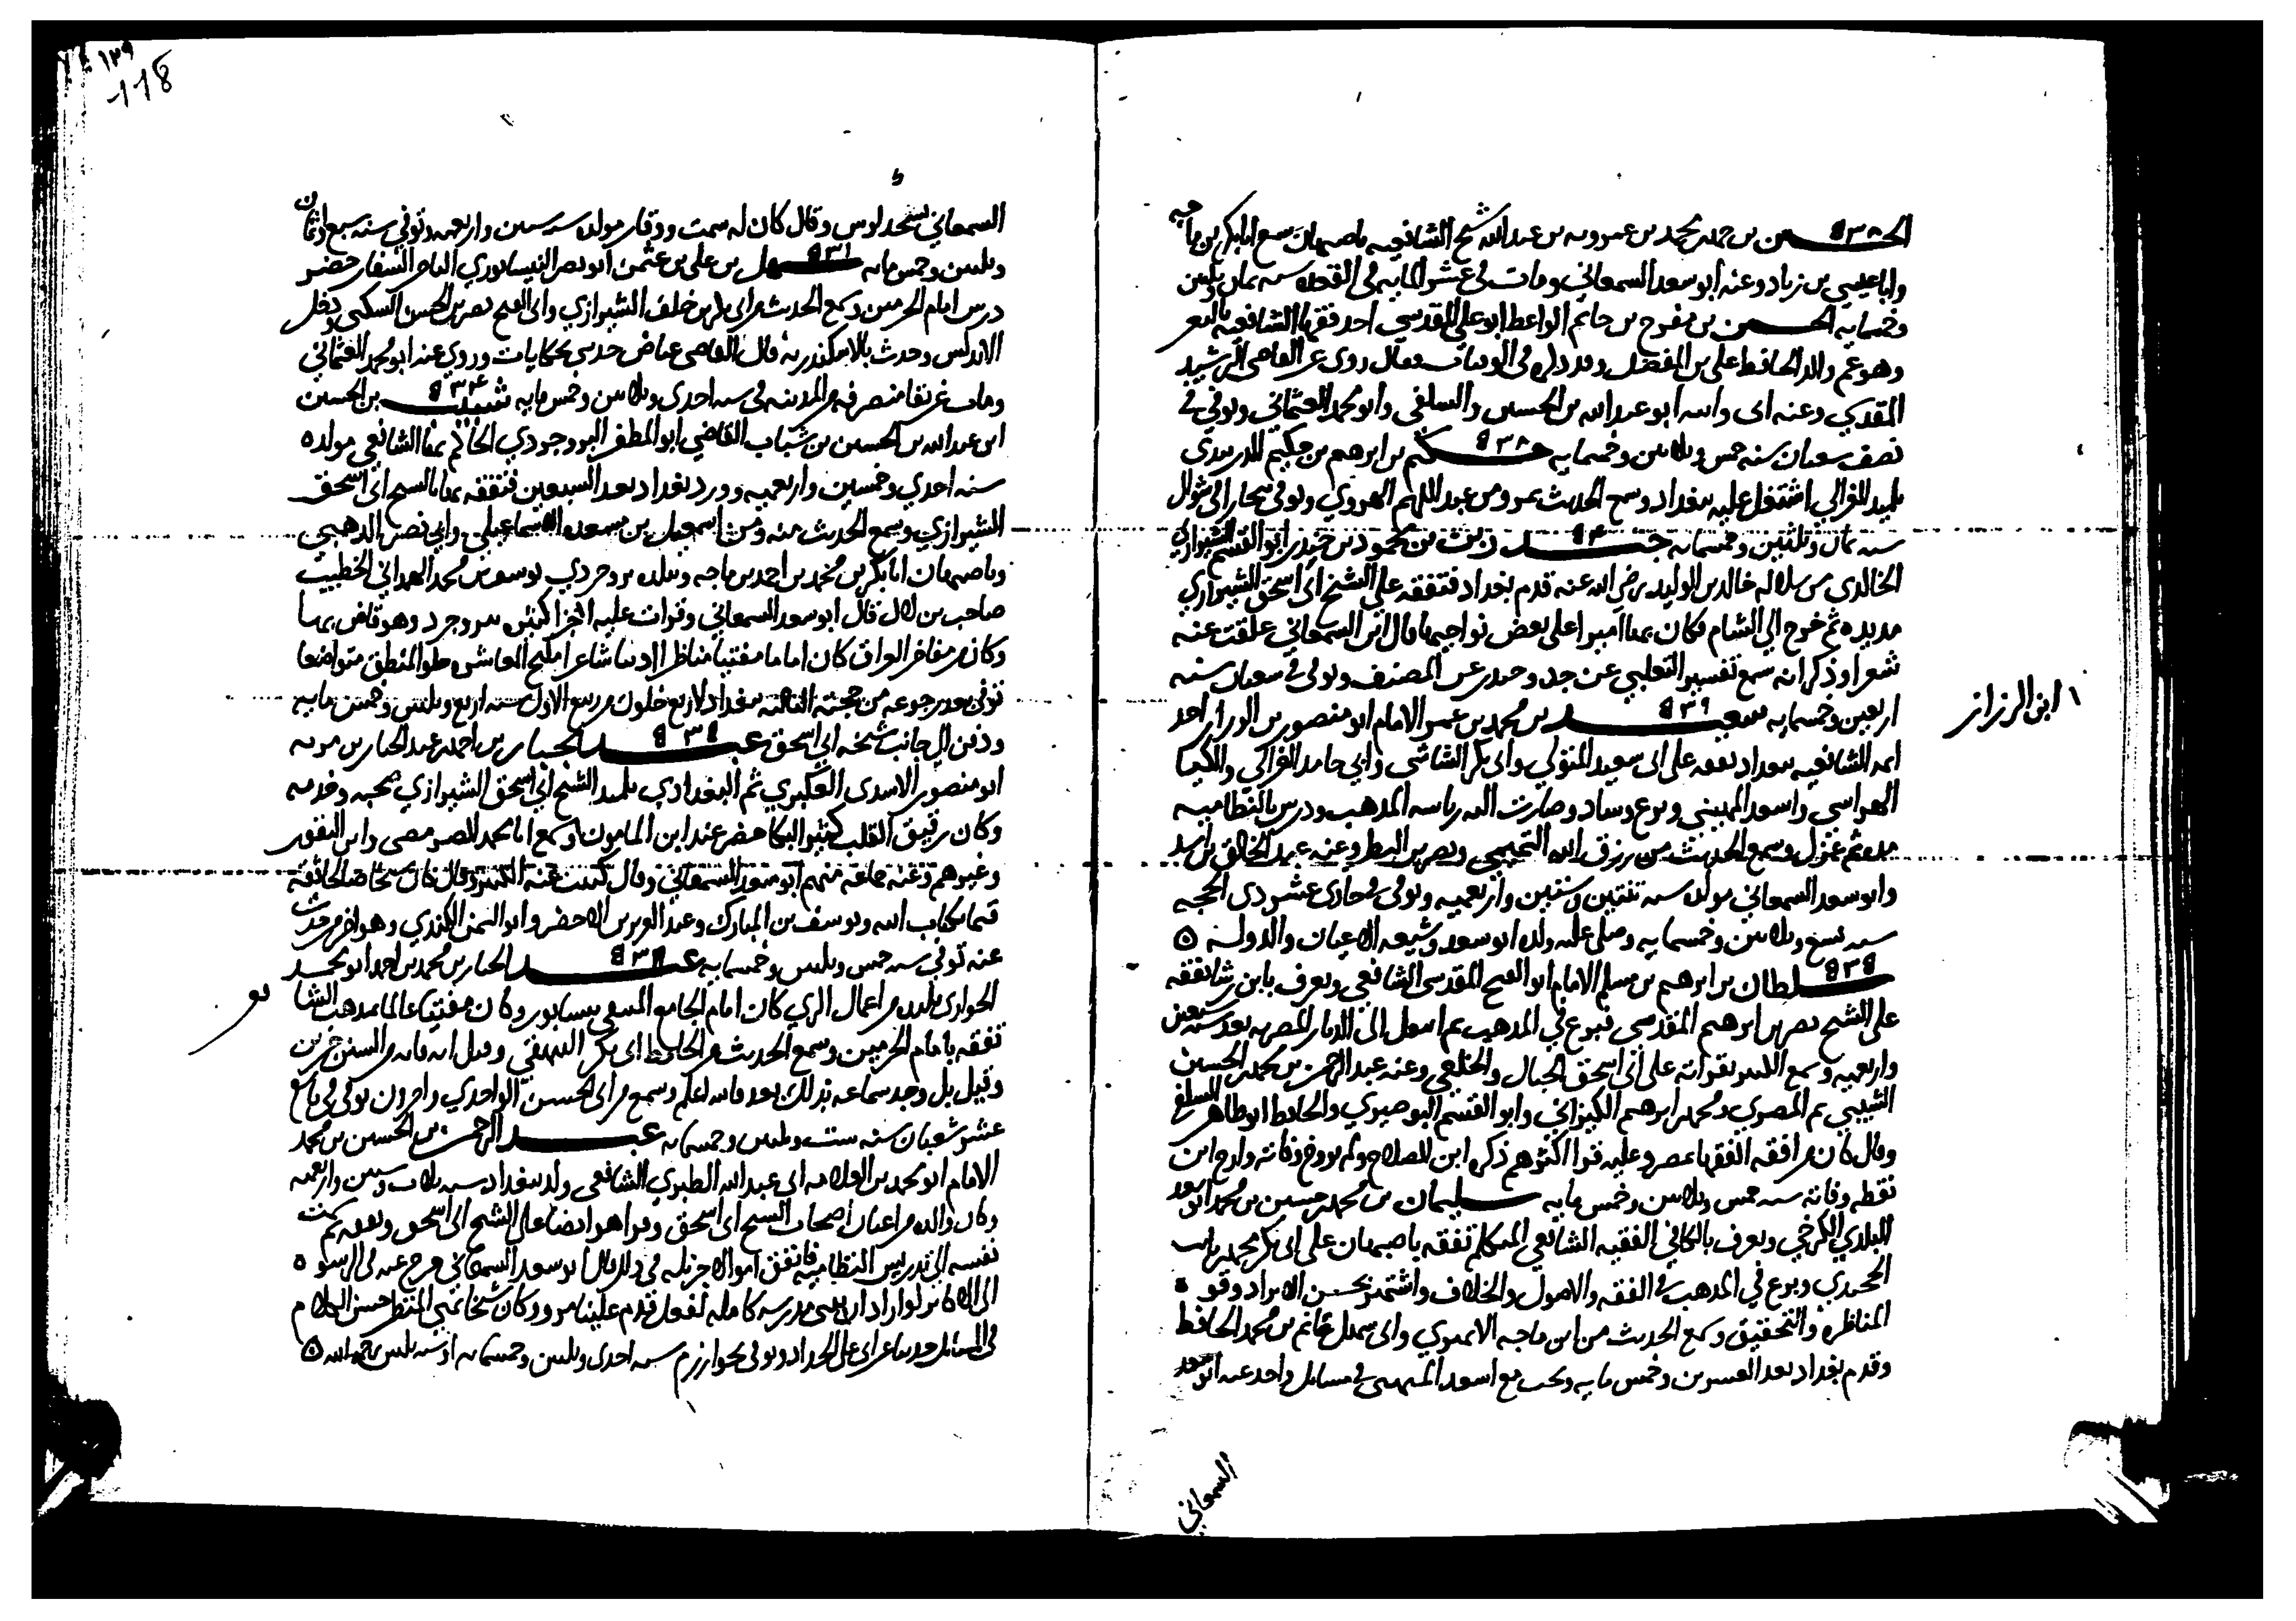 الحسن بن حمد بن محمد بن عمرويه بن عبد الله شيخ الشافعيه باصبهان سمع ابا بكر بن ماجه
وابا عيسى بن زياد وعنه ابو سعد السمعاني ومات في عشر المايه في القطه سنه ثمان وثلثين
وخمسمايه الحسين بن مفرح بن حاتم الواعظ ابو علي المقدسي احد فقها الشافعيه بالثغر
وهو عم والد الحافظ علي بن المفضل وقد ذكره في الوفيات فقال روى عن القاضي الرشيد
المقدسي وعنه ابي وابنه ابو عبد الله بن الحسين والسلفي وابو محمد العثماني وتوفي في
نصف شعبان سنه خمس وثلاثين وخمسمايه ٥٣٨ حكيم بن ابرهيم بن حكيم الدربندي
تلميد الغزالي اشتغل عليه ببغداد وسمع الحديث بمرو من عبد اللهم الهروي وتوفي ببخارا في شوال
سنه ثمان وثلثين وخمسمايه بن ثابت بن محمود بن حيدر ابو القسم الشيرازي
الخالدي من سلاله خالد بن الوليد رضي الله عنه قدم بغداد فتفقه علي الشيخ ابي اسحق الشيرازي
مديده ثم خرج الي الشام فكان بها اميرا على بعض نواحيها قال ابن السمعاني علقت عنه
شعرا وذكر انه سمع تفسير الثعلبي عن جده حيدر عن المصنف وتوفي في شعبان سنه
اربعين وخمسمايه ٥٣٩ سعيد بن محمد بن عمر الامام ابو منصور بن الرزاز احد
ايمه الشافعيه ببغداد تفقه علي ابي سعيد المتولي وابي بكر الشاشي وابي حامد الغزالي والكيا
الهراسي واسعد الميهني وبرع وساد وصارت اليه رياسه المذهب ودرس بالنظاميه
مده ثم عزل وسمع الحديث من رزق الله التميمي ونصر بن البطر وعنه عبد الخالق بن اسد
وابو سعد السمعاني مولده سنه ثنتين وستين واربعميه وتوفي في حادي عشر ذي الحجه
سنه تسع وثلاثين وخمسمايه وصلى عليه ولده ابو سعد وشيعه الاعيان والدوله
٥٣٥ سلطان بن ابرهيم بن مسلم الامام ابو الفتح المقدسي الشافعي ويعرف بابن رشا تفقه
علي الشيخ نصر بن ابرهيم المقدسي فبرع في المذهب ثم انتقل الي الديار المصريه بعد سبعين
واربعميه وسمع الكثير بقراته على ابي اسحق الحبال والخلعي وعنه عبد الرحمن بن محمد بن الحسين
السيبي ثم المصري ومحمد بن ابرهيم الكيزاني وابو القسم البوصيري والحافظ ابو طاهر السلفي
وقال كان من افقه الفقها بمصر وعليه قرا اكثرهم ذكره ابن الصلاح ولم يورخ وفاته وارخ ابن
نقطه وفاته سنه خمس وثلاثين وخمس مايه سليمان بن محمد بن حسين بن محمد ابو سعد
البلدي الكرخي ويعرف بالكافي الفقيه الشافعي المتكلم تفقه باصبهان علي ابي بكر محمد بن ثابت
الخجندي وبرع في المذهب في الفقه والاصول والخلاف واشتهر بحسن الايراد وقوه
المناظره والتحقيق وسمع الحديث من ابن ماجه الابهري وابي سهل غانم بن محمد الحافظ
وقدم بغداد بعد العشرين وخمس مايه وبحث مع اسعد الميهني في مسايل واحد عنه ابو سعد
السمعاني
١ ابن الرزاز
١٢٩
118
السمعاني وقال كان له سمت ووقار مولده سنه ستين واربعميه وتوفي سنه سبع او ثمان
وثلثين وخمس مايه ٥٣١ سهل بن علي بن عثمن ابو نصر النيسابوري التاجر السفار حضر
درس امام الحرمين وسمع الحديث من ابي بكر بن خلف الشيرازي وابي الفتح نصر بن الحسن السكتي ودخل
الاندلس وحدث بالاسكندريه قال القاضي عياض حدثني بحكايات وروى عنه ابو محمد العثماني
ومات غريقا منصرفه من المدينه في سنه احدى وثلاثين وخمس مايه ٥٣٤ شبيب بن الحسين
ابن عبد الله بن الحسين بن شباب القاضي ابو المظفر البروجردي الحاكم بها الشافعي مولده
سنه احدي وخمسين واربعميه وورد بغداد بعد السبعين فتفقه بها بالشيخ ابي اسحق
الشيرازي وسمع الحديث منه ومن اسمعيل بن مسعده الاسماعيلي وابي نصر الذهبي
وباصبهان ابا بكر بن محمد بن احمد بن ماجه وببلده بروجردي يوسف بن محمد الهمداني الخطيب
صاحب بن لال قال ابو سعد السمعاني وقرات عليه اجزا كثير ببروجرد وهو قاض بها
وكان من مفاخر العراق كان اماما مفتيا مناظرا اديبا شاعرا مليح المعاشره حلو المنطق متواضعا
توفي بعد رجوعه من حجته الثالثه ببغداد لاربع خلون من ربيع الاول سنه اربع وثلثين وخمس مايه
ودفن الي جانب شيخه ابي اسحق ٥٣٥ عبد الجبار بن احمد بن عبد الجبار بن توبه
ابو منصور الاسدي العكبري ثم البغدادي تلميد الشيخ ابي اسحق الشيرازي صحبه وخدمه
وكان رقيق القلب كثير البكا حضر عند ابن المامون وسمع ابا محمد الصريفيني وابن النقور
وغيرهم وعنه جماعه منهم ابو سعد السمعاني وقال كتبت عنه الكثير وقال كان شيخا صالحا ثقه
قيما بكتاب الله ويوسف بن المبارك وعبد العزيز بن الاخضر وابو اليمن الكندي وهو اخر من حدث
عنه توفي سنه خمس وثلثين وخمسمايه ٥٣٦ عبد الجبار بن محمد بن احمد ابو محمد
الخواري بليده من اعمال الري كان امام الجامع المنيعي بنيسابور وكان مفتيا عالما بمذهب الشا
تفقه بامام الحرمين وسمع الحديث من الحافظ ابي بكر البيهقي وقيل انه فاته من السنن جزءين
وقيل بل وجد سماعه بذلك بعد فالله اعلم وسمع من ابي الحسن الواحدي واخرون توفي في تاسع
عشر شعبان سنه ست وثلثين وخمسمايه عبد الرحمن بن الحسين بن محمد
الامام ابو محمد بن العلامه ابي عبد الله الطبري الشافعي ولد ببغداد سنه ثلاث وستين واربعميه
وكان والده من اعيان اصحاب الشيخ ابي اسحق وقرا هو ايضا علي الشيخ ابي اسحق وبعده ثم سمت
نفسه الي تدريس النظاميه فانفق اموالا جزيله في ذلك قال ابو سعد السمعاني خرج عنه في الرشوه
الي الاكابر لو اراد ان يبني مدرسه كامله لفعل قدم علينا مرو وكان شيخا بهي المنظر حسن الكلام
في المسايل حدثنا عن ابي علي الحداد وتوفي بخوارزم سنه احدى وثلثين وخمسمايه او سنه ثلثين رحمه الله